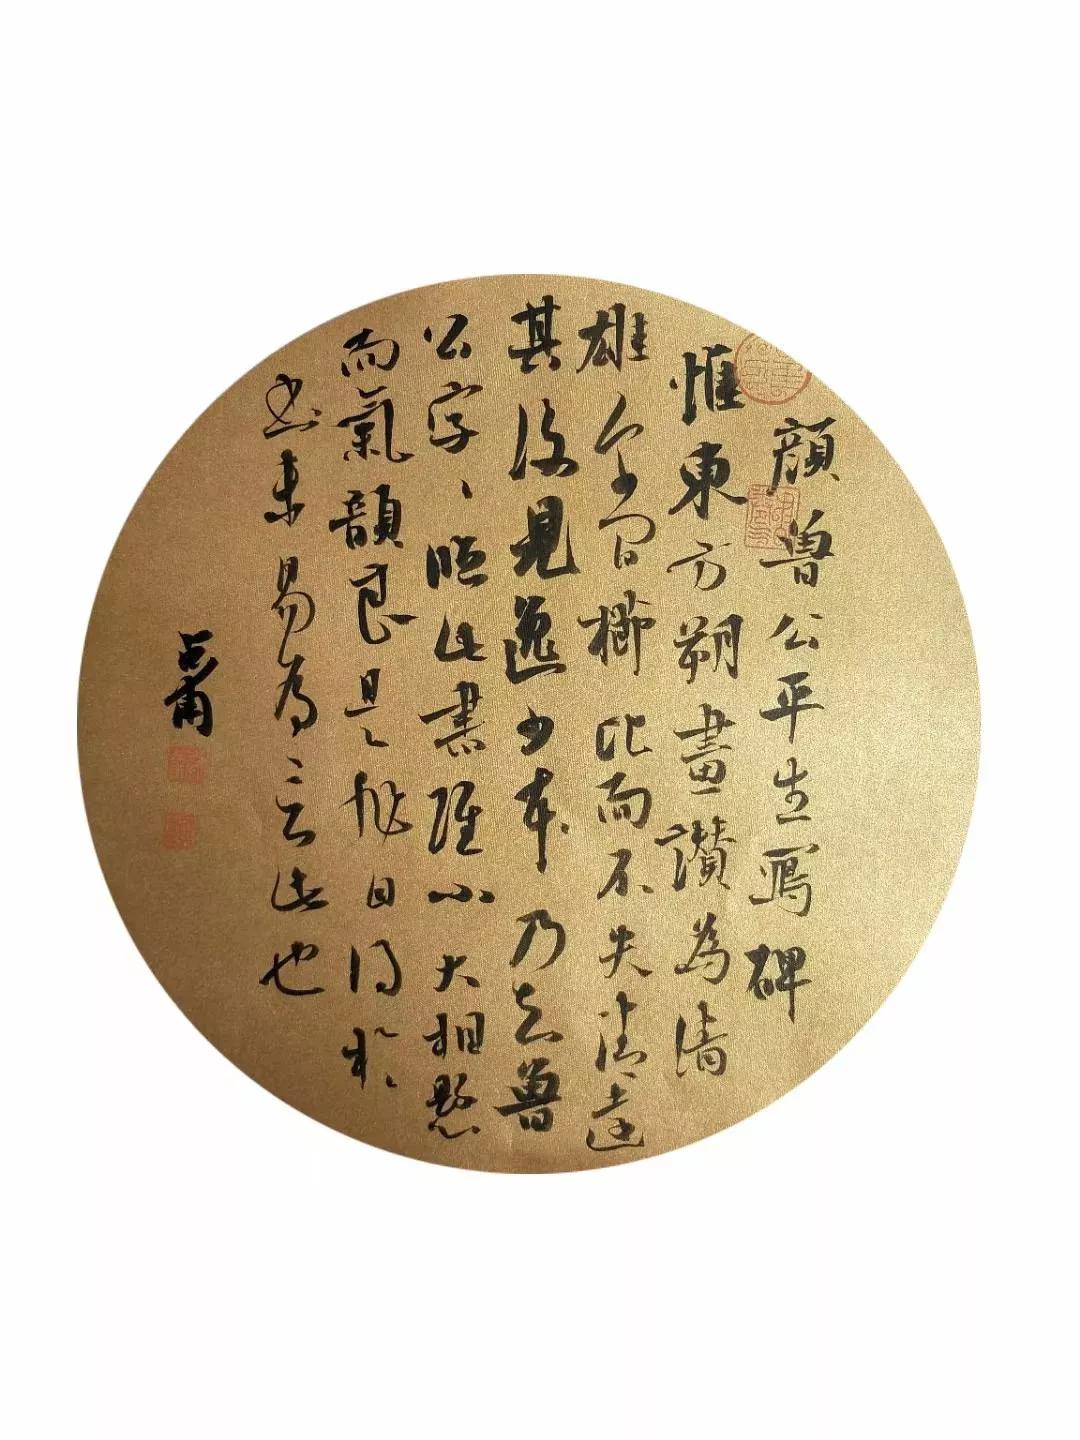 顔魯公平生寫碑
惟東方朔畫讚為清
雄字間櫛比而不失清遠
其後見逸少本乃知魯
公字、臨此書雖小大相懸
而氣韻良是非自得於
書未易為言此也